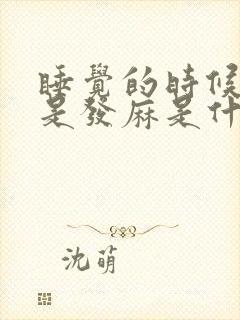 睡覺的時候
是發麻是什
沈萌